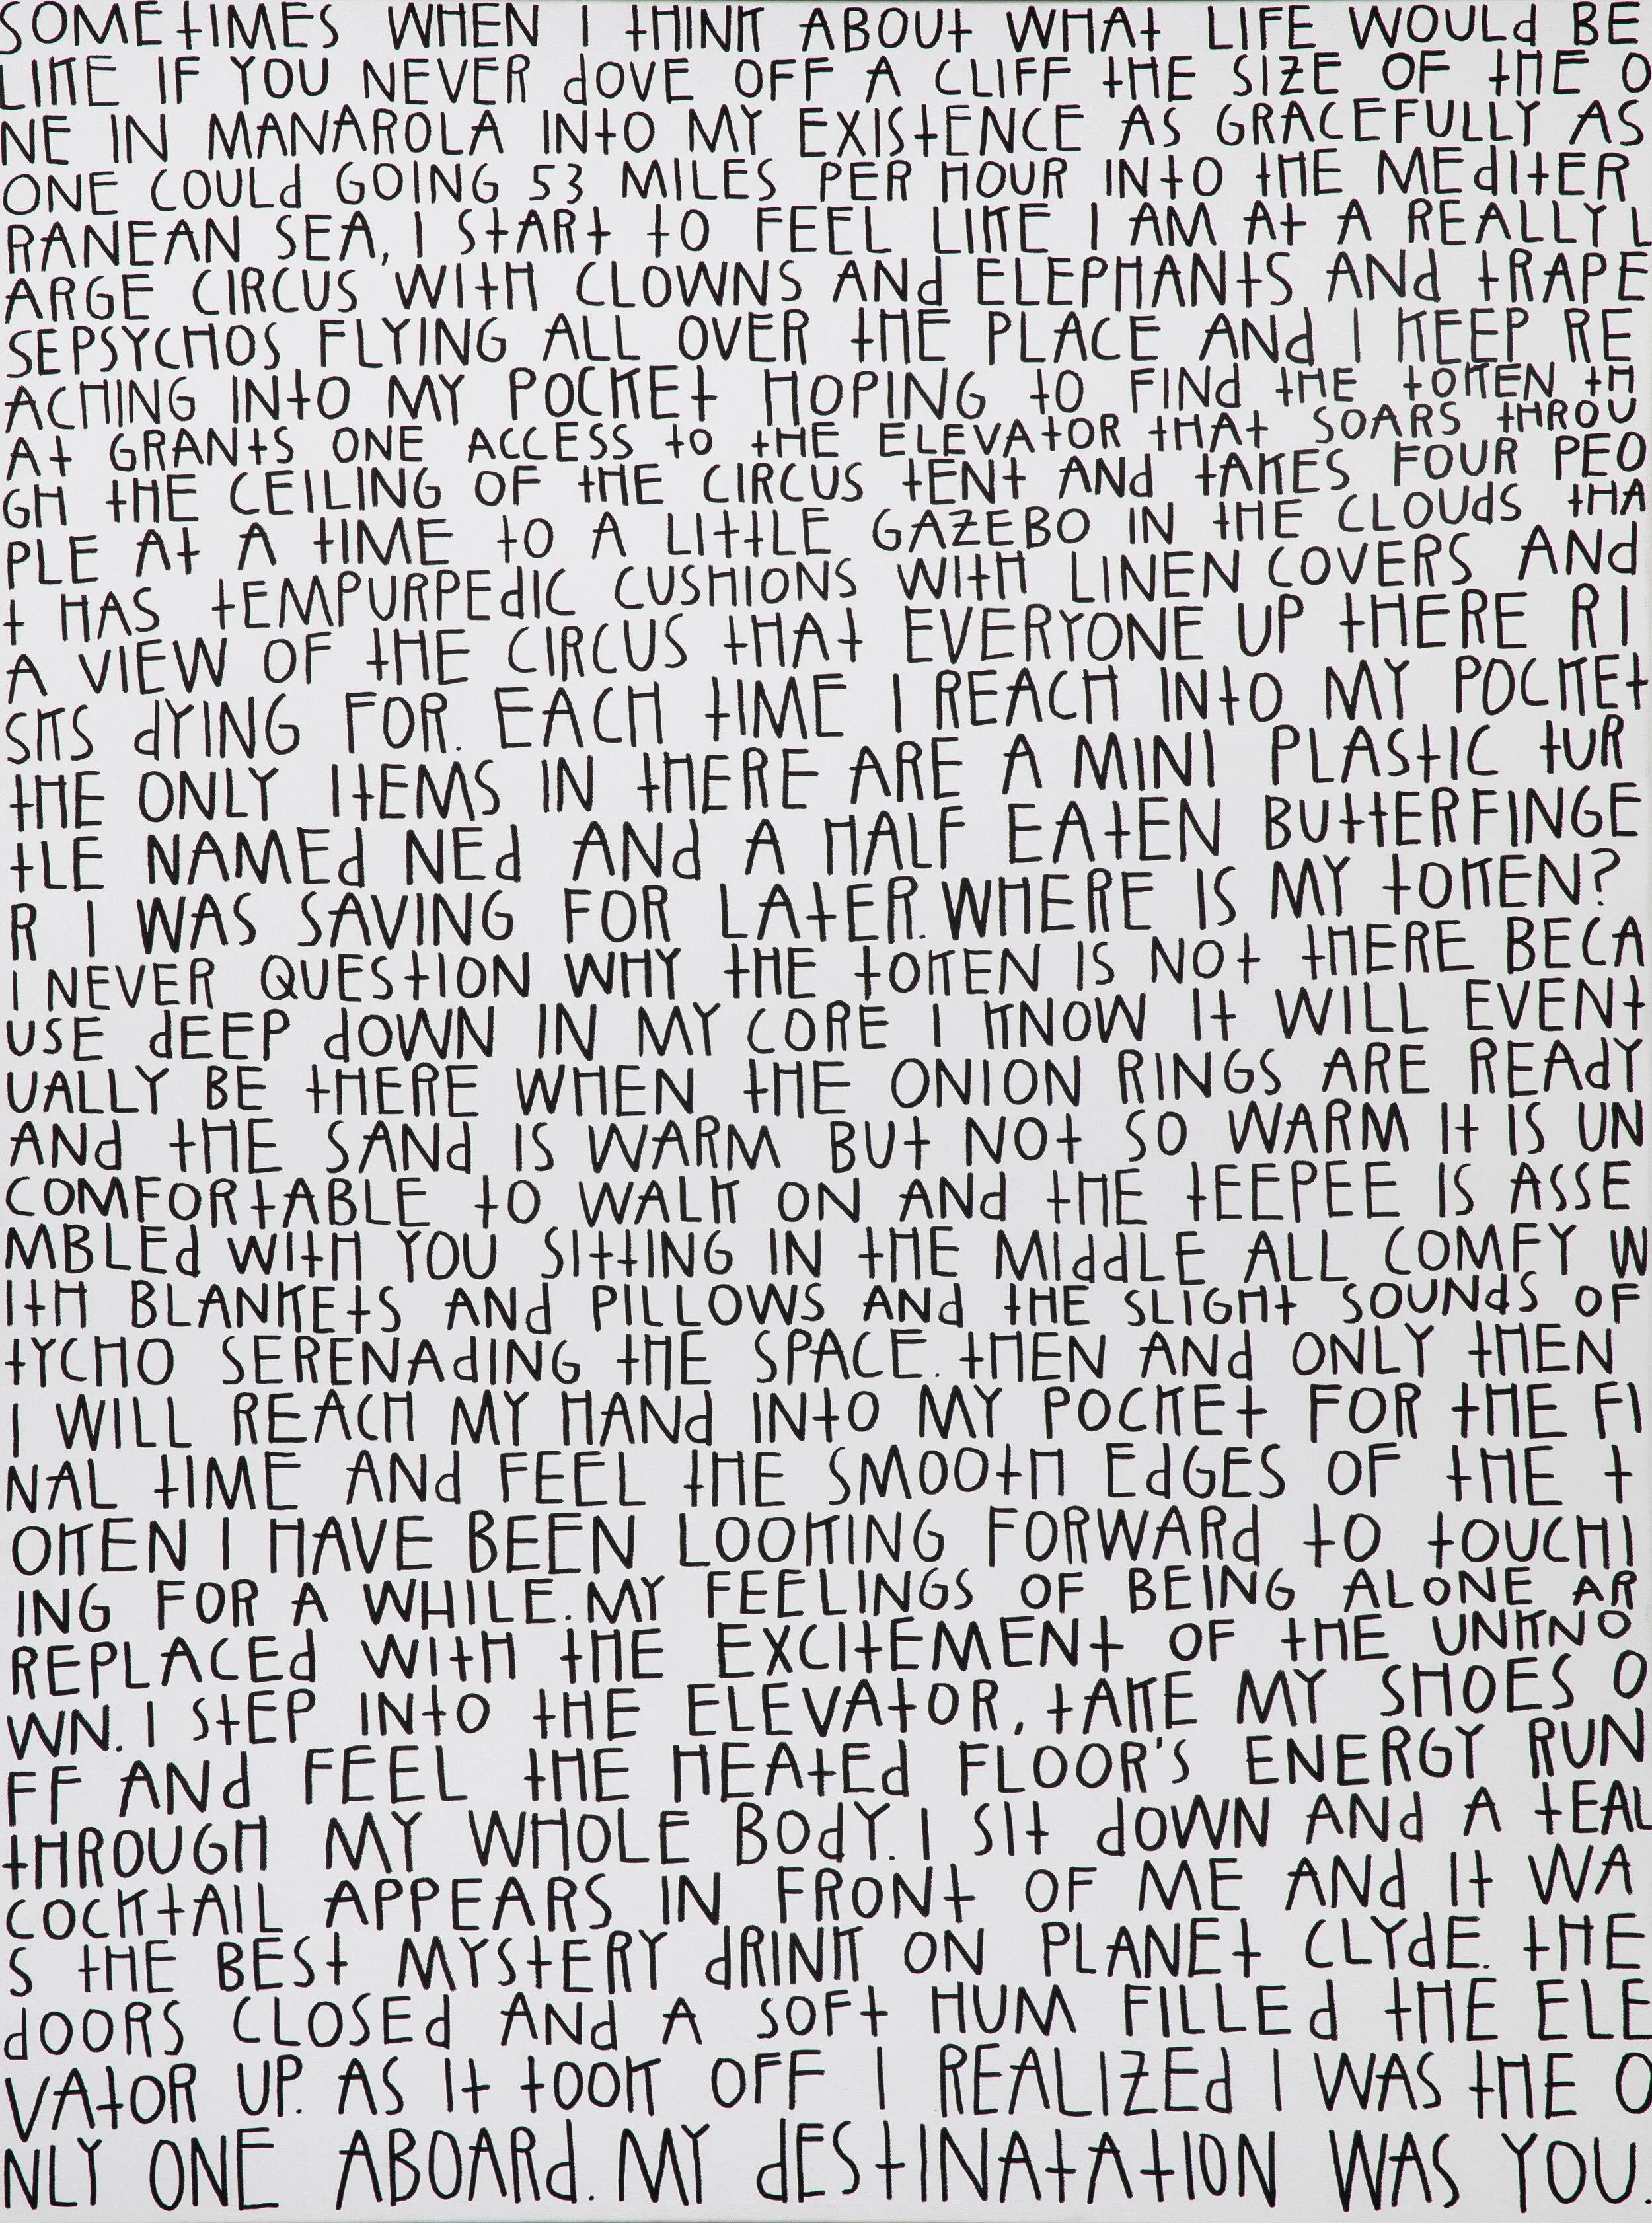 SOMEtIMES WHEN I tHINK ABOUt WHAt LIFE WOULd BE
LIKE IF YOU NEVER dOVE OFF A CLIFF tHE SIZE OF tHE O
NE IN MANAROLA INtO MY EXIStENCE AS GRACEFULLY AS
ONE COULd GOING 53 MILES PER HOUR INtO tHE MEdItER
RANEAN SEA, I StARt tO FEEL LIKE I AM At A REALLY L
ARGE CIRCUS WItH CLOWNS ANd ELEPHANtS ANd tRAPE
SEPSYCHOS FLYING ALL OVER tHE PLACE ANd I KEEP RE
ACHING INtO MY POCKEt HOPING tO FINd tHE tOKEN tH
At GRANtS ONE ACCESS tO tHE ELEVAtOR tHAt SOARS tHROU
GH tHE CEILING OF tHE CIRCUS tENt ANd tAKES FOUR PEO
PLE At A tIME tO A LIttLE GAZEBO IN tHE CLOUdS tHA
t HAS tEMPURPEdIC CUSHIONS WItH LINEN COVERS ANd
A VIEW OF tHE CIRCUS tHAt EVERYONE UP tHERE RI
SKS dYING FOR. EACH tIME I REACH INtO MY POCKEt
tHE ONLY ItEMS IN tHERE ARE A MINI PLAStIC tUR
tLE NAMEd NEd ANd A HALF EAtEN BUttERFINGE
R I WAS SAVING FOR LAtER. WHERE IS MY tOKEN?
I NEVER QUEStION WHY tHE tOKEN IS NOt tHERE BECA
USE dEEP dOWN IN MY CORE I KNOW It WILL EVENt
UALLY BE tHERE WHEN tHE ONION RINGS ARE REAdY
ANd tHE SANd IS WARM BUt NOt SO WARM It IS UN
COMFORtABLE tO WALK ON ANd tHE tEEPEE IS ASSE
MBLEd WItH YOU SIttING IN tHE MIddLE ALL COMFY W
ItH BLANKEtS ANd PILLOWS ANd tHE SLIGHt SOUNdS OF
tYCHO SERENAdING tHE SPACE. tHEN ANd ONLY tHEN
I WILL REACH MY HANd INtO MY POCKEt FOR tHE FI
NAL tIME ANd FEEL tHE SMOOtH EdGES OF tHE t
OKEN I HAVE BEEN LOOKING FORWARd tO tOUCHI
ING FOR A WHILE. MY FEELINGS OF BEING ALONE AR
REPLACEd WItH tHE EXCItEMENt OF tHE UNKNO
WN. I StEP INtO tHE ELEVAtOR, tAKE MY SHOES O
FF ANd FEEL tHE HEAtEd FLOOR'S ENERGY RUN
tHROUGH MY WHOLE BOdY. I SIt dOWN ANd A tEAL
COCKtAIL APPEARS IN FRONt OF ME ANd It WA
S tHE BESt MYStERY dRINK ON PLANEt CLYdE. tHE
dOORS CLOSEd ANd A SOFt HUM FILLEd tHE ELE
VAtOR UP. AS It tOOK OFF I REALIZEd I WAS tHE O
NLY ONE ABOARd. MY dEStINAtAtION WAS YOU.